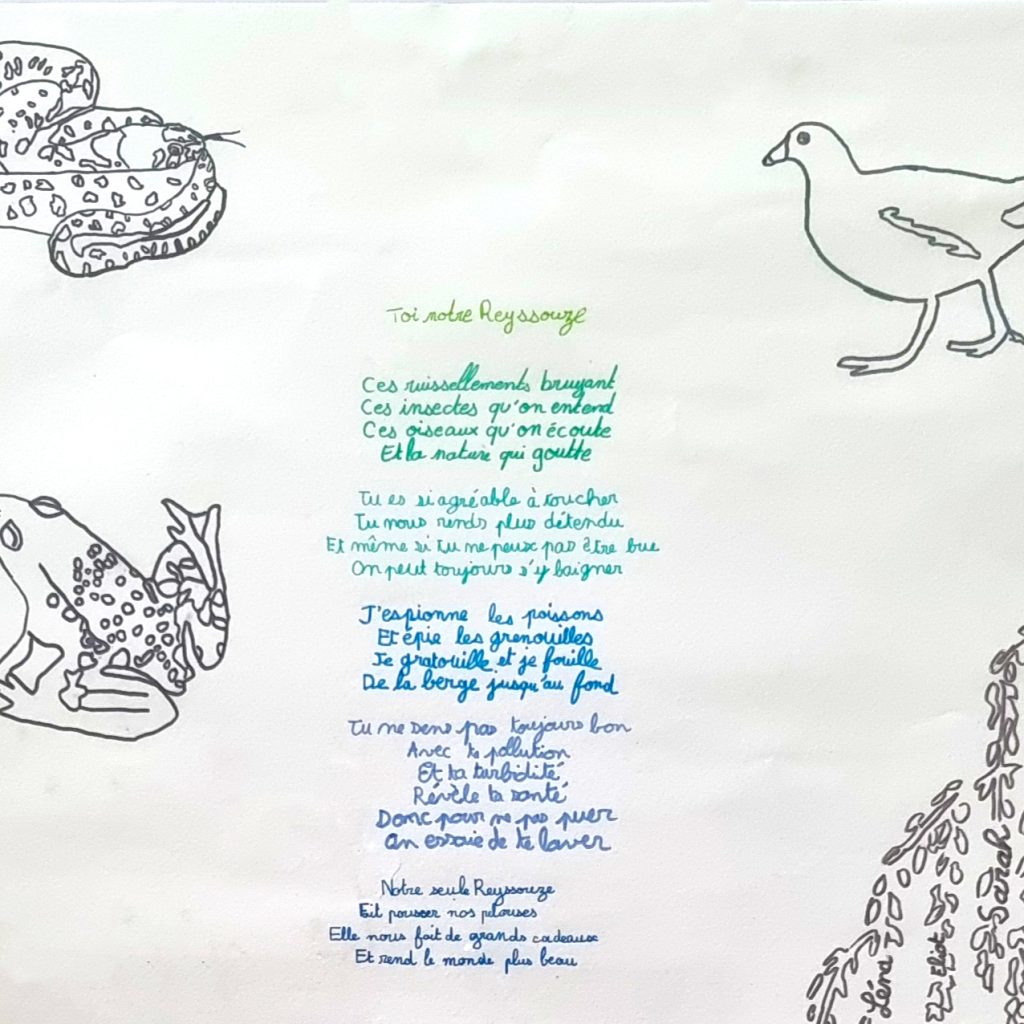 Toi notre Reyssouze
Ces ruissellements bruyant
Ces insectes qu'on entend
Ces oiseaux qu'on écoute
Et la nature qui goutte
Tu es si agréable à toucher
Tu nous rends plus détendu
Et même si tu ne peux pas être bue
On peut toujours s'y baigner
J'espionne les poissons
Et épie les grenouilles
Je gratouille et je fouille
De la berge jusqu'au fond
Tu ne sens pas toujours bon
Avec ta pollution
Et ta turbidité
Révèle ta santé
Donc pour ne pas puer
On essaie de te laver
Notre seule Reyssouze
Fait pousser nos pelouses
Elle nous fait de grands cadeaux
Et rend le monde plus beau
Léna J
Eliot
Sarah